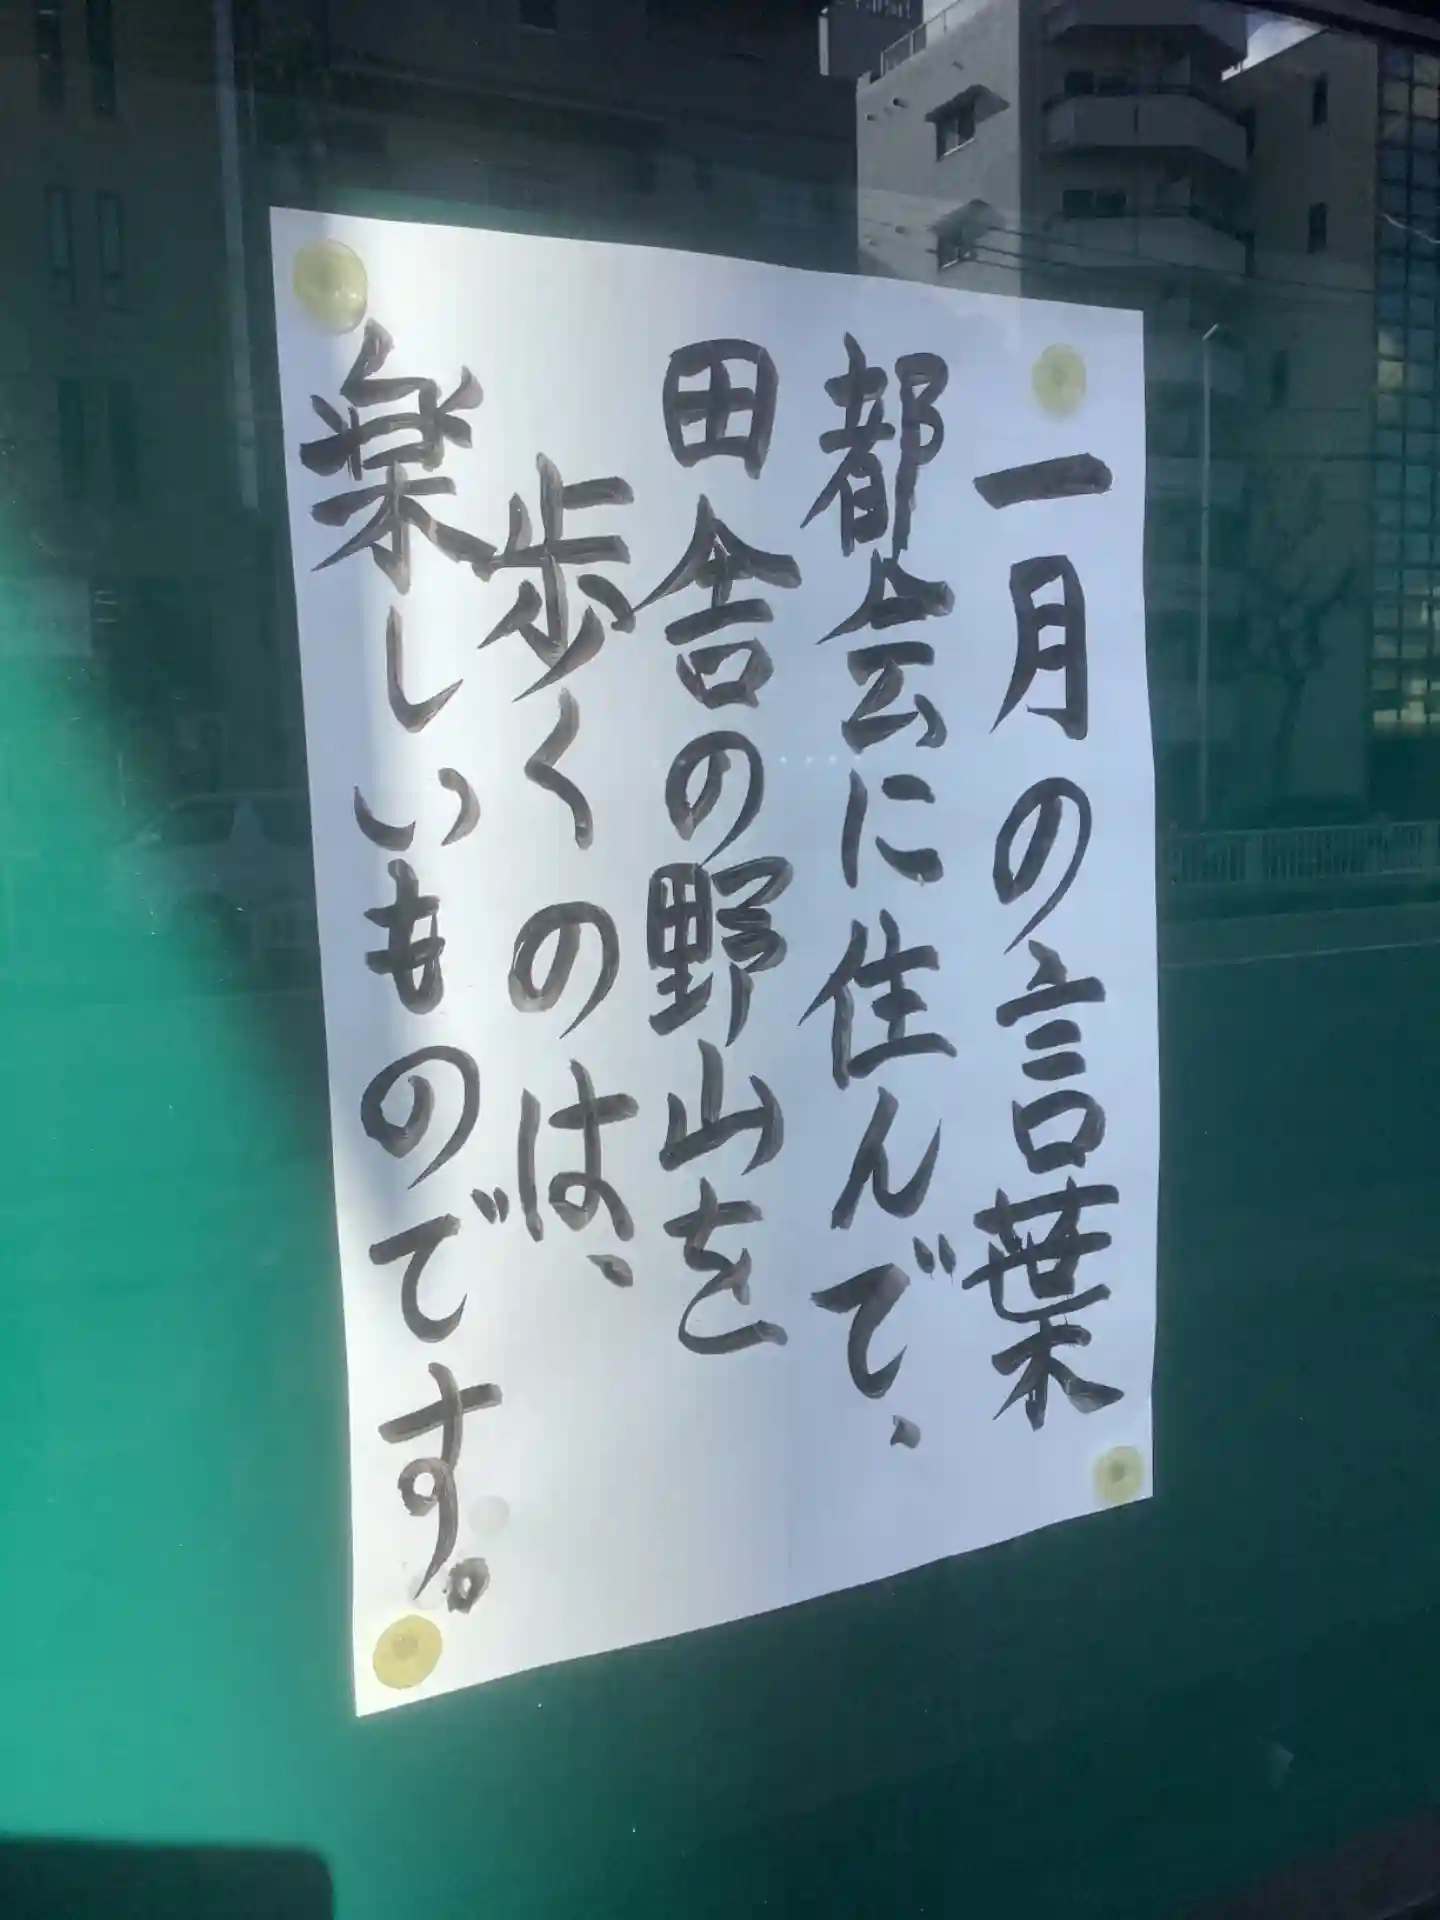 一月の言葉
都会に住んで、
田舎の野山を
歩くのは、
楽しいものです。